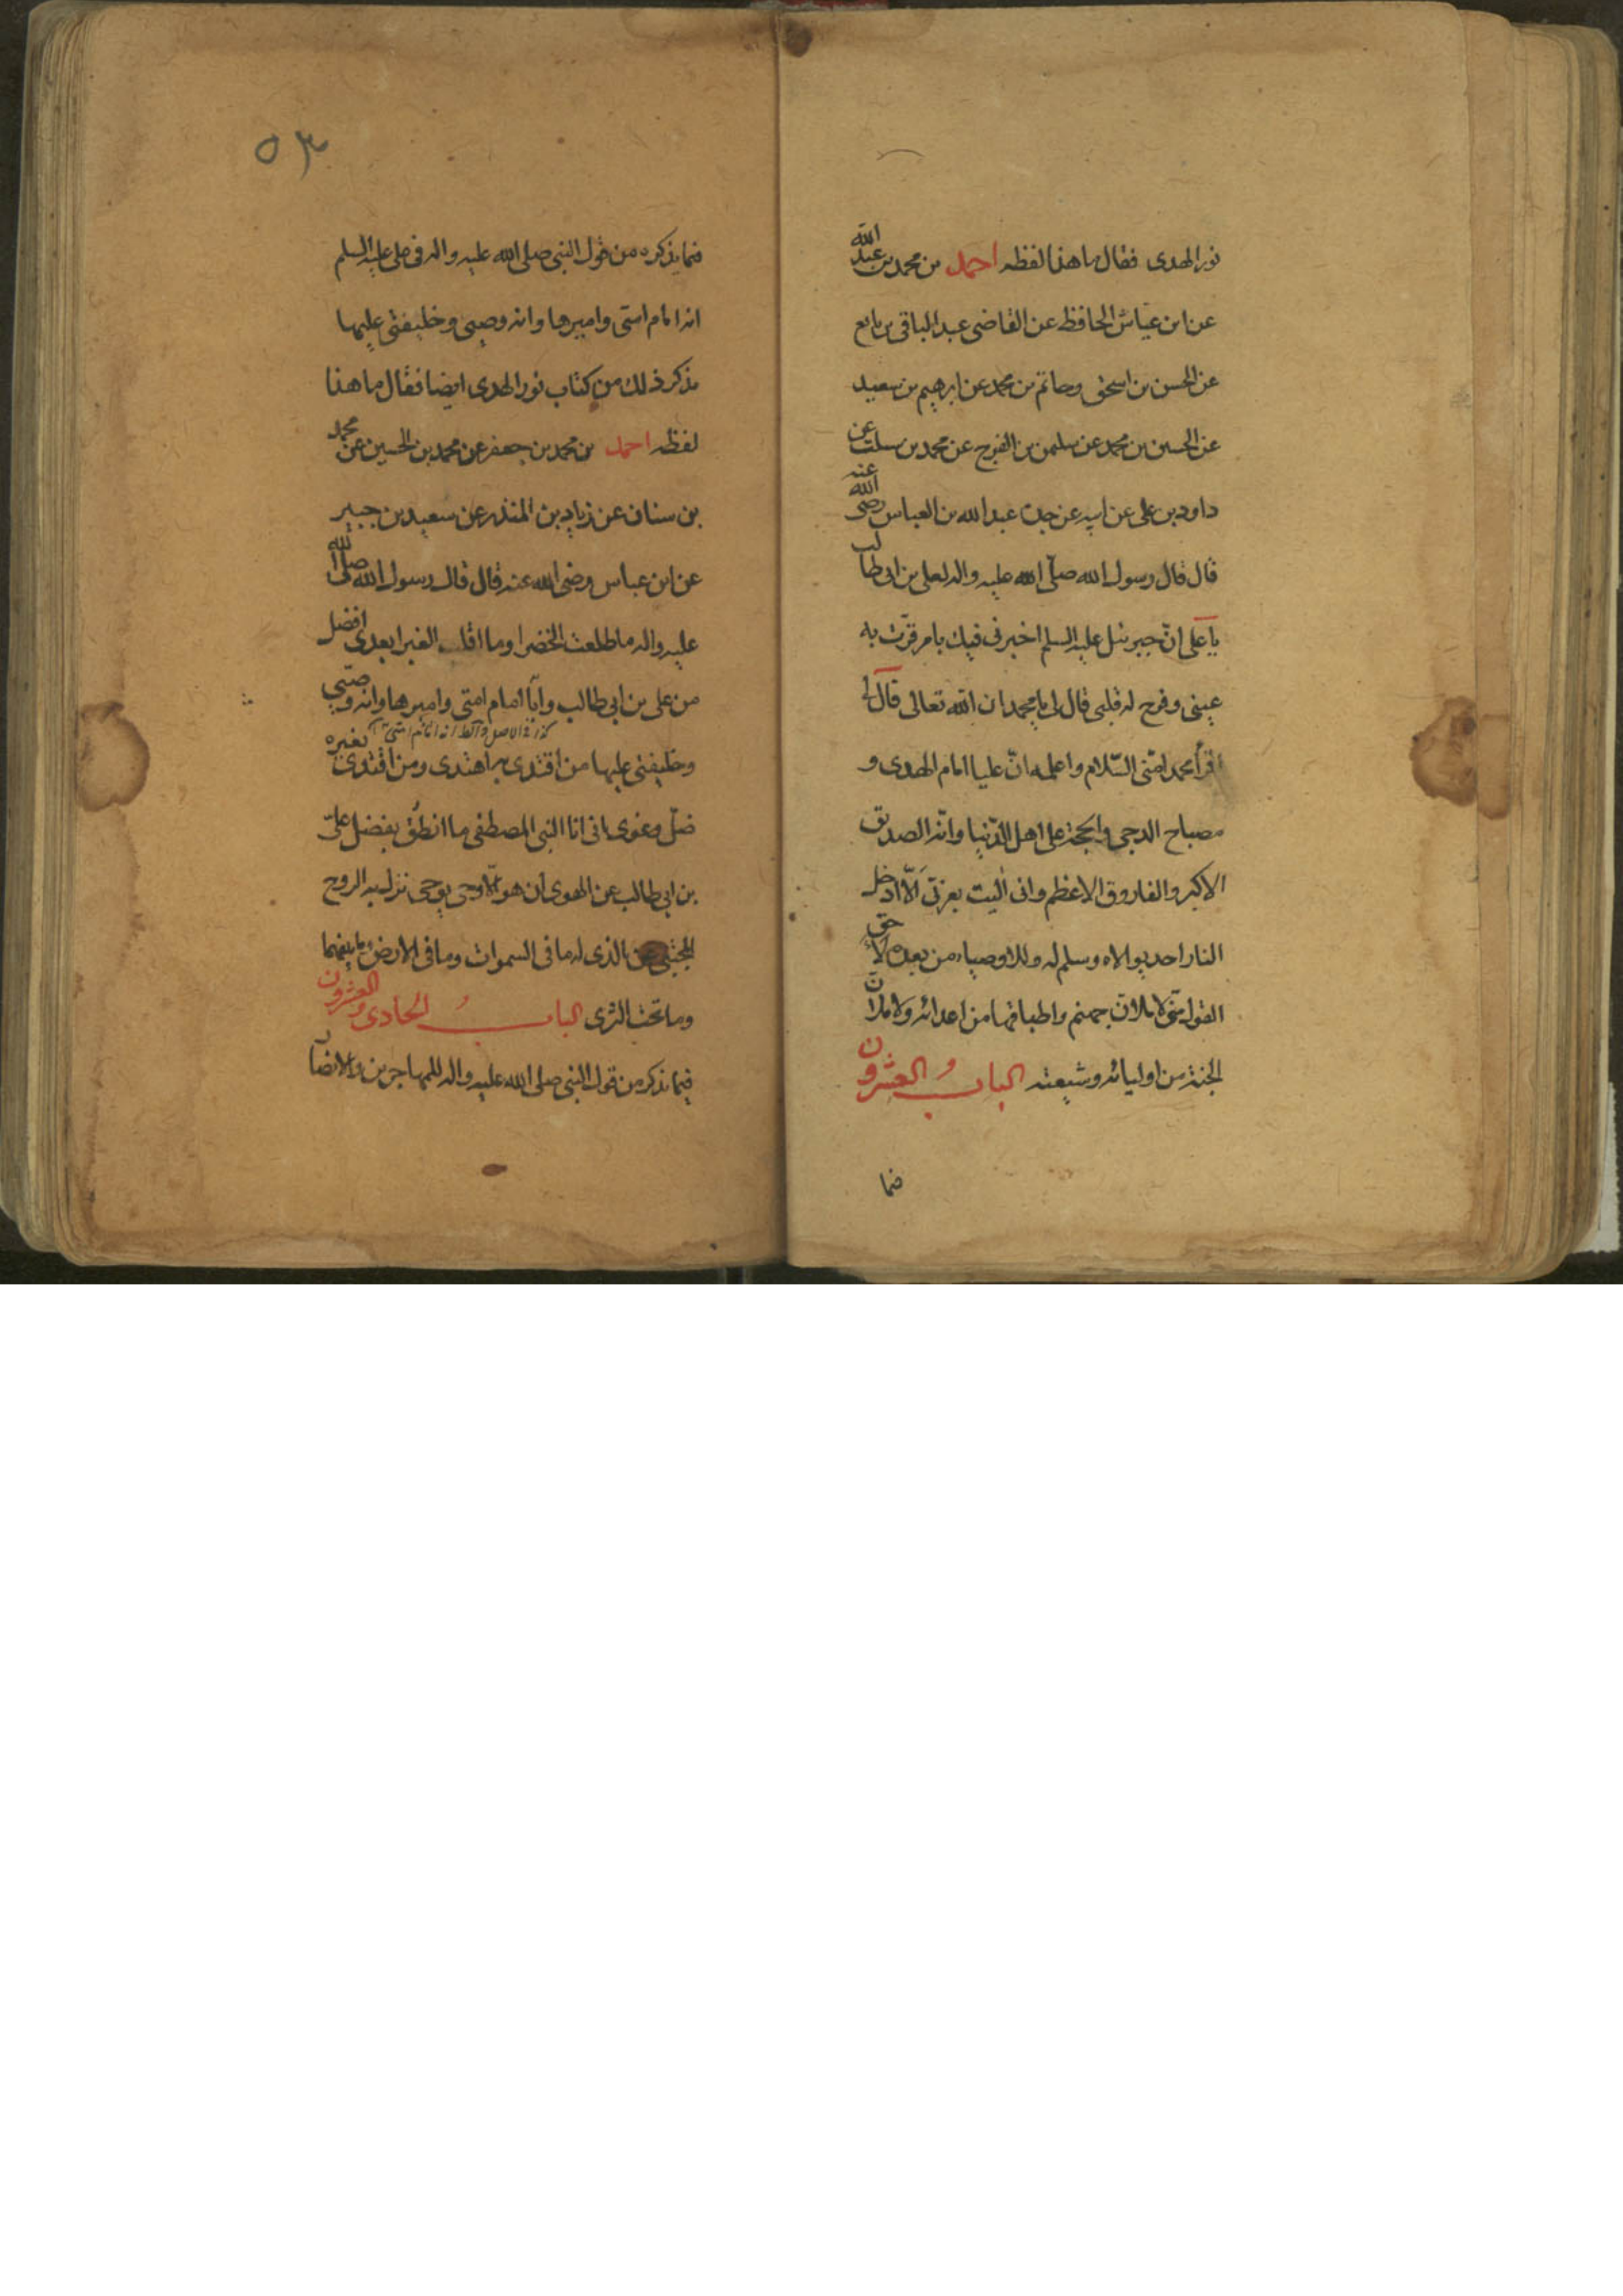 نور الهدى فقال ما هذا لفظه احمد بن محمد بن عبد الله
عن ابن عياش الحافظ عن القاضى عبد الباقى بن نافع
عن الحسن بن اسحق وحاتم بن محمد عن ابرهيم بن سعيد
عن الحسين بن محمد عن سليمن بن الفرج عن محمد بن سلت عن
داود بن على عن ابيه عن جده عبد الله بن العباس رضى الله عنه
قال قال رسول الله صلّى الله عليه واله لعلى بن ابى طالب
يا على انّ جبرئيل عليه السلم اخبرنى فيك بامر قرّت به
عينى وفرح له قلبى قال لى يا محمد ان الله تعالى قال لى
اقرأ محمدا منّى السّلام واعلمه انّ عليا امام الهدى و
مصباح الدجى والحجة على اهل الدّنيا وانّه الصديق
الاكبر والفاروق الاعظم وانى اليت بعزتى الّا ادخل
النار احد يولاه وسلم له وللاوصياء من بعده لأ حق
القول منّى لاملانّ جهنم واطباقها من اعدائه ولاملانّ
الجنة من اوليائه وشيعته الباب والعشرون
فيما
٥٣
فيما يذكره من قول النبى صلى الله عليه واله فى على عليه السلم
انه امام امتى واميرها وانه وصيى وخليفتى عليها
نذكر ذلك من كتاب نور الهدى ايضا فقال ما هذا
لفظه احمد بن محمد بن جعفر عن محمد بن الحسين عن محمد
بن سنان عن زياد بن المنذر عن سعيد بن جبير
عن ابن عباس رضى الله عنه قال قال رسول الله صلى الله
عليه واله ما طلعت الخضرا وما اقلت الغبرا بعدى افضل
من على بن ابى طالب وايّا امام امتى واميرها وانه وصيّى
كذا فى الاصل و انه امام امتى
وخليفتى عليها من اقتدى به اهتدى ومن اقتدى بغيره
ضلّ وغوى انى انا النبى المصطفى ما انطق بفضل علىّ
بن ابى طالب عن الهوى ان هو الّا وحى يوحى نزل به الروح
المجتبى عن الذى له ما فى السموات وما فى الارض وما بينهما
وما تحت الثرى الباب الحادى والعشرون
فيما نذكر من قول النبى صلى الله عليه واله للمهاجرين والانصار